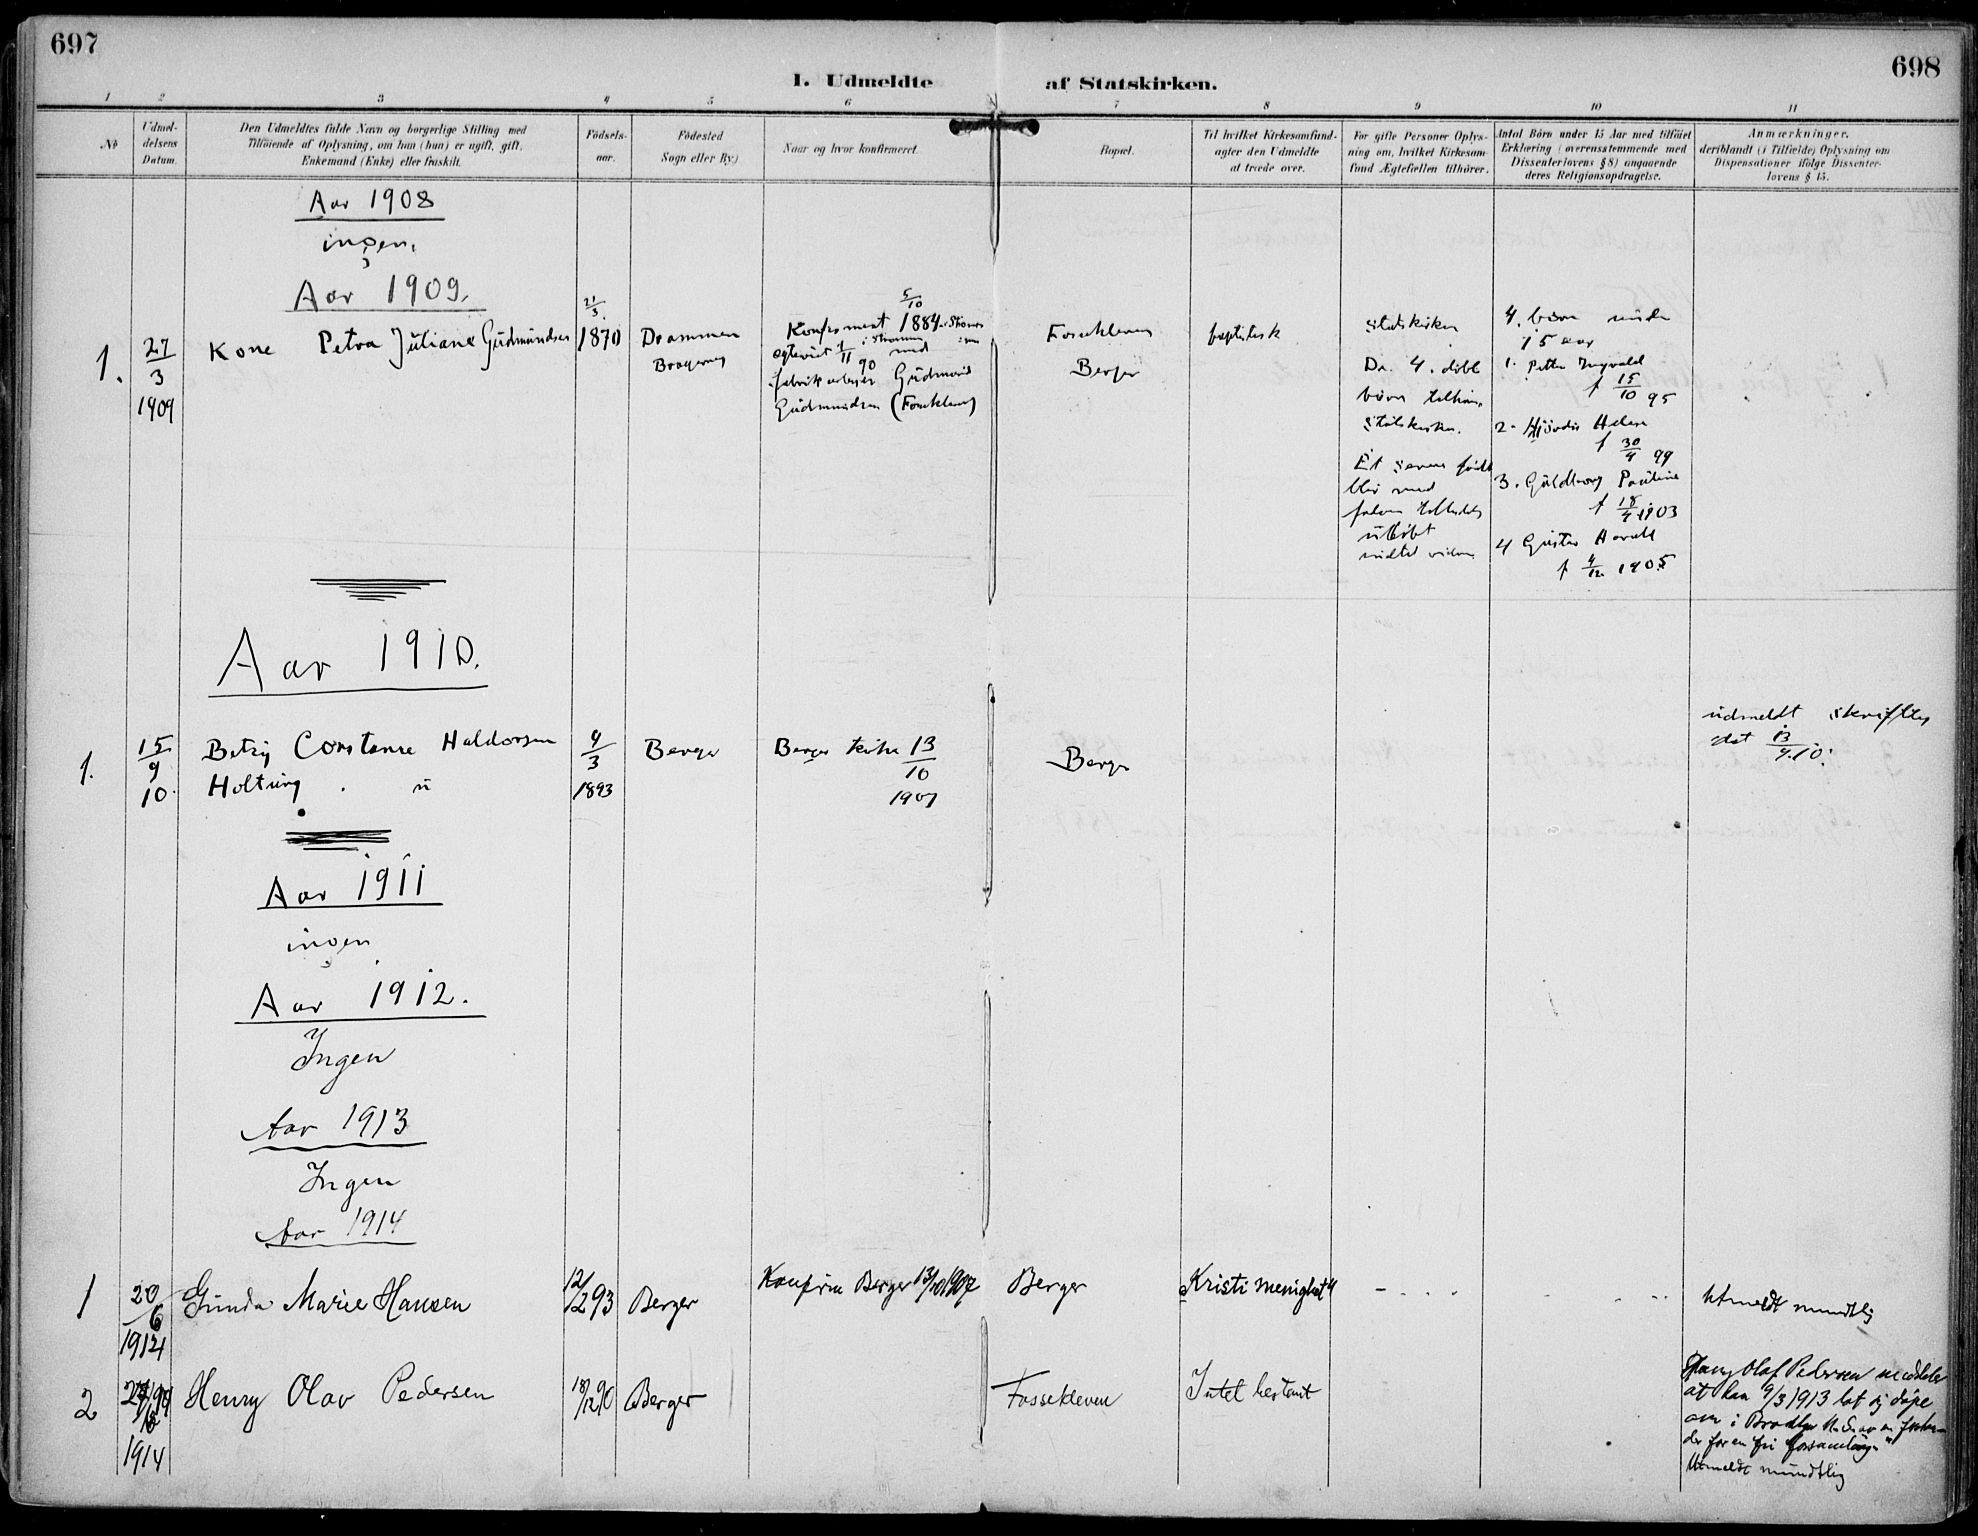 697
698
1. Udmeldte af Statskirken.
1 2 3 4 5 6 7 8 9 10 11
No
Udmel-
delsens
Datum.
Den Udmeldtes fulde Navn og borgerlige Stilling med
Tilføiende af Oplysning, om han (hun) er ugift, gift,
Enkemand (Enke) eller fraskilt.
Fødsels-
aar.
Fødested
Sogn eller By.)
Naar og hvor konfirmeret.
Bopæl.
Til hvilket Kirkesamfund-
agter den Udmeldte
at træde over.
For gifte Personer Oplys-
ning om, hvilket Kirkesam-
fund Ægtefællen tilhører.
Antal Børn under 15 Aar med tilføiet
Erklæring (overensstemmende med
Dissenterlovens § 8) angaaende
deres Religionsopdragelse.
Anmærkninger.
deriblandt (i Tilfælde) Oplysning om
Dispensationer ifølge Dissenter-
lovens § 15.
Aar 1908
ingen.
Aar 1909.
1.
27/3
1909
Kone Petra Juliane Gudmundsen
21/3
1870
Drammen
Bragernes
5/10
Konfirmert 1884
med
90
fabrikarbeider Gudmund
Gudmundsen (Fossekleven)
Fossekleven
Berger
baptistisk
Statskirken
De 4. døbte
børn tilhører
Statskirken.
4. børn under
15 aar
1. Petter Ingvald
f 15/10 95
2. Hjørdis Helene
f 30/4 99
3. Guldborg Pauline
f 18/4 1903
4 Gustav Harald
f 4/12 1905
Aar 1910.
1.
15/9
10.
Betzy Constanse Haldorsen
Holtung. u
4/3
1893
Berger
Berger kirke 13/10
1907
Berger
udmeldt skriftlig
dat 13/9.10.
Aar 1911
ingen
Aar 1912.
Ingen
Aar 1913
Ingen
Aar 1914
1
20/6
1914
Gunda Marie Hansen
12/12 93
Berger
Konfirm Berger 13/10 1907
Berger
Kristi menighet
Utmeldt mundtlig
2
1914
Henry Olav Pedersen
18/12 90
Berger
Fossekleven
Intet bestemt
Henry Olaf Pedersen meddeler
at han 9/3 1913 lot sig døpe
om i Brooklyn
der for en fri forsamling"
Utmeldt mundtlig